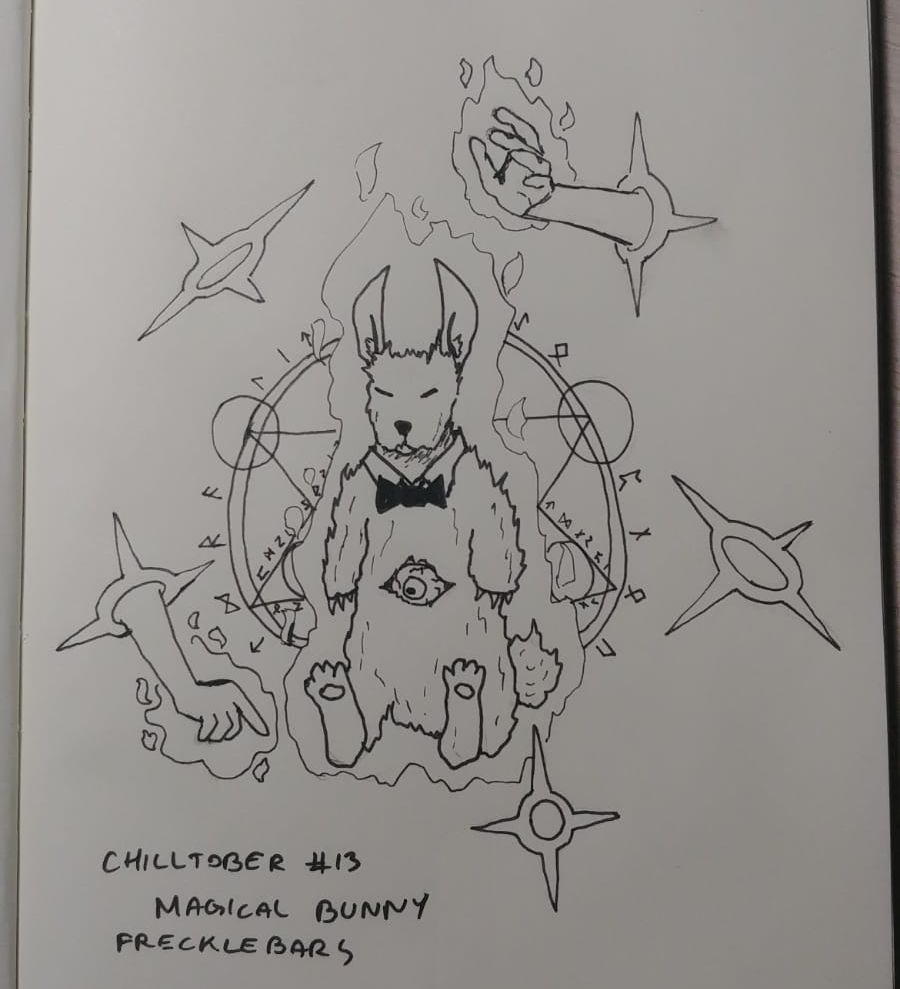 CHILLTOBER #13
MAGICAL BUNNY
FRECKLEBARS